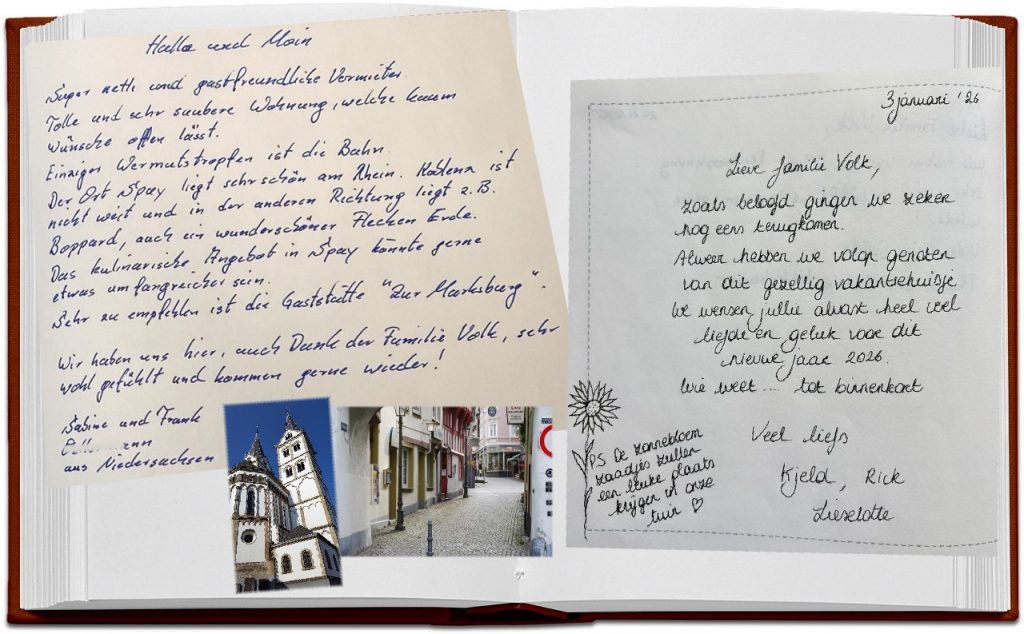 Hallo und Moin
Super nette und gastfreundliche Vermieter.
Tolle und sehr saubere Wohnung, welche kaum
wünsche offen lässt.
Einziger Wermutstropfen ist die Bahn.
Der Ort Spay liegt sehr schön am Rhein. Koblenz ist
nicht weit und in der anderen Richtung liegt z.B.
Boppard, auch ein wunderschöner Flecken Erde.
Das kulinarische Angebot in Spay könnte gerne
etwas umfangreicher sein.
Sehr zu empfehlen ist die Gaststätte "Zur Marksburg".
Wir haben uns hier, auch Dank der Familie Volk, sehr
wohl gefühlt und kommen gerne wieder!
Sabine und Frank
aus Niedersachsen
3 januari '26
Lieve familie Volk,
zoals beloofd gingen we zeker
nog eens terugkomen.
Alweer hebben we volop genoten
van dit gezellig vakantiehuisje
We wensen jullie alvast heel veel
liefde en geluk voor dit
nieuwe jaar 2026.
Wie weet .... tot binnenkort
Veel liefs
Kjeld, Rick
Liezelotte
PS De zonnebloem
zaadjes zullen
een leuke plaats
krijgen in onze
tuin ♡